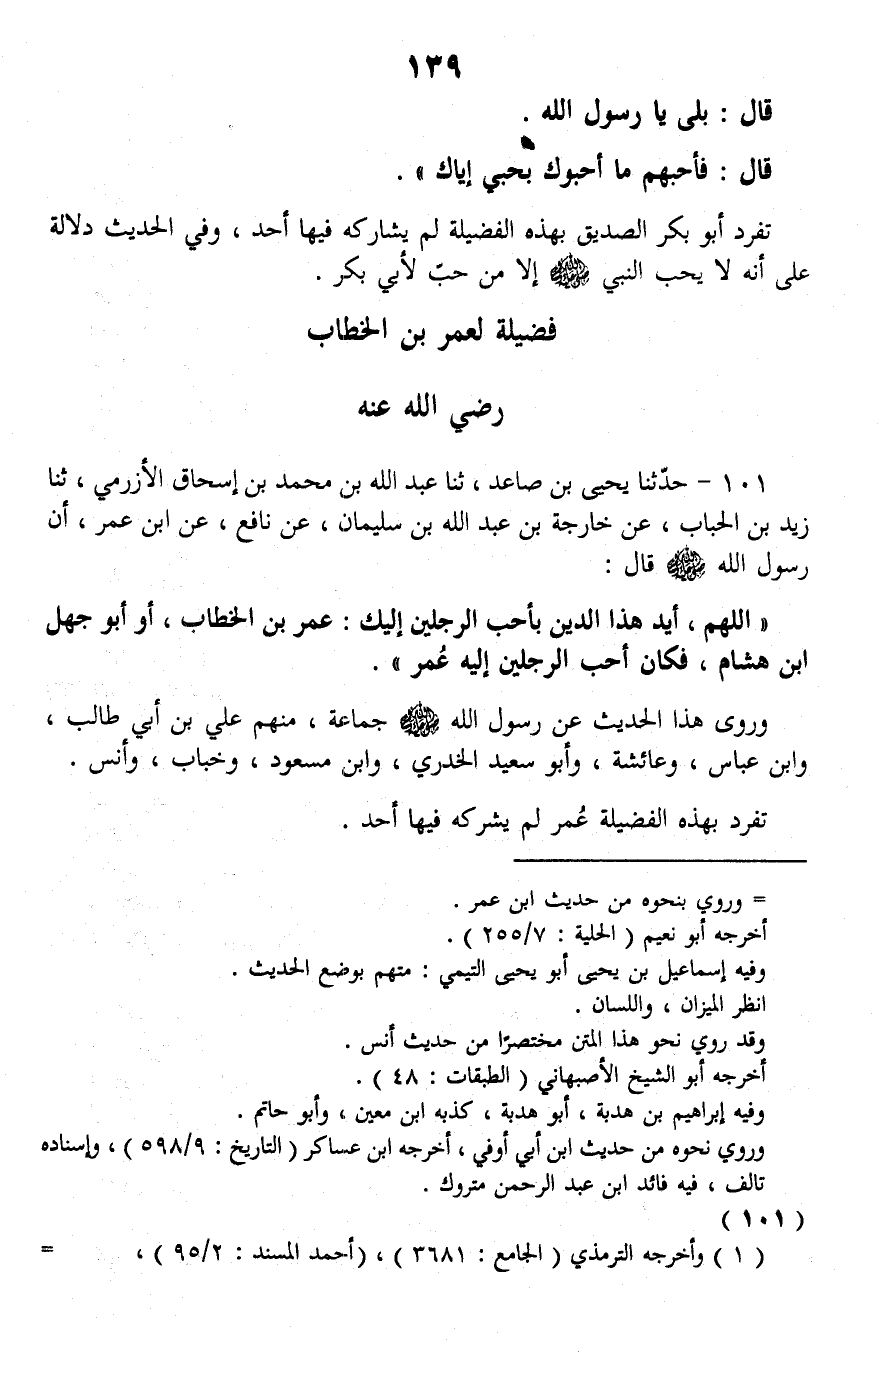 ١٣٩
قال : بلى يا رسول الله .
قال : فأحبهم ما أحبوك بحبي إياك » .
تفرد أبو بكر الصديق بهذه الفضيلة لم يشاركه فيها أحد ، وفي الحديث دلالة
على أنه لا يحب النبي ﷺ إلا من حبّ لأبي بكر .
فضيلة لعمر بن الخطاب
رضي الله عنه
١٠١ - حدّثنا يحيى بن صاعد ، ثنا عبد الله بن محمد بن إسحاق الأزرمي ، ثنا
زيد بن الحباب ، عن خارجة بن عبد الله بن سليمان ، عن نافع ، عن ابن عمر ، أن
رسول الله ﷺ قال :
« اللهم ، أيد هذا الدين بأحب الرجلين إليك : عمر بن الخطاب ، أو أبو جهل
ابن هشام ، فكان أحب الرجلين إليه عُمر » .
وروى هذا الحديث عن رسول الله ﷺ جماعة ، منهم علي بن أبي طالب ،
وابن عباس ، وعائشة ، وأبو سعيد الخدري ، وابن مسعود ، وخباب ، وأنس .
تفرد بهذه الفضيلة عُمر لم يشركه فيها أحد .
= وروي بنحوه من حديث ابن عمر .
أخرجه أبو نعيم ( الحلية : ٢٥٥/٧ ) .
وفيه إسماعيل بن يحيى أبو يحيى التيمي : متهم بوضع الحديث .
انظر الميزان ، واللسان .
وقد روي نحو هذا المتن مختصرًا من حديث أنس .
أخرجه أبو الشيخ الأصبهاني ( الطبقات : ٤٨ ) .
وفيه إبراهيم بن هدبة ، أبو هدبة ، كذبه ابن معين ، وأبو حاتم .
وروي نحوه من حديث ابن أبي أوفي ، أخرجه ابن عساكر ( التاريخ : ٥٩٨/٩ ) ، وإسناده
تالف ، فيه فائد ابن عبد الرحمن متروك .
( ١٠١ )
( ١ ) وأخرجه الترمذي ( الجامع : ٣٦٨١ ) ، (أحمد المسند : ٩٥/٢ ) ، =